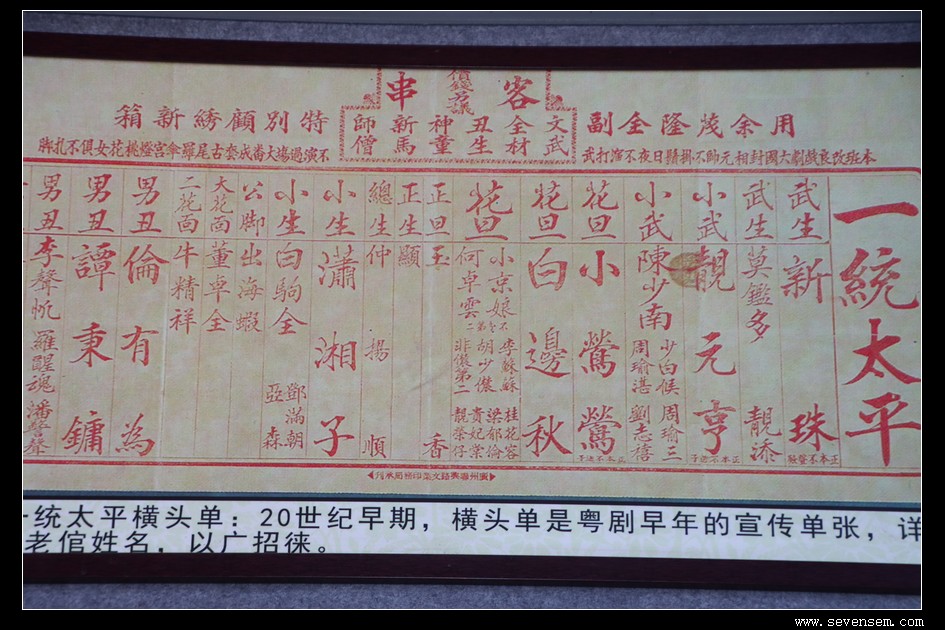 價錢另議
客串
文武全材
丑生神童
新馬師僧
用余茂隆全副
特別顧綉新箱
本班改良戲劇大國封相元帥不掛鬚日夜不演打武
不演過場大番成套古尾羅傘宮燈桃花女俱不扎脚
一統太平
武生 新珠
正本不登發
武生 莫鑑多 靚添
小武 靚元亨
小武 陳少南 少白候 周瑜湛 周瑜三 劉志禧
花旦 小鶯鶯
花旦 白邊秋
花旦 小京娘 何卓雲 李蘇蘇 胡少儂 非儂第一 桂花容 梁郁倫 貴妃棠 靚榮仔
正旦 玉香
正生 顯
總生 仲揚順
小生 瀟湘子
小生 白駒全 鄧滿朝 亞森
公脚 出海蝦
大花面 董卓全
二花面 牛精祥
男丑 倫有為
男丑 譚秉鏞
男丑 李聲帆 羅醒魂 潘聲聲
一统太平横头单：20世纪早期，横头单是粤剧早年的宣传单张，详
老倌姓名，以广招徕。
www.sevensem.com